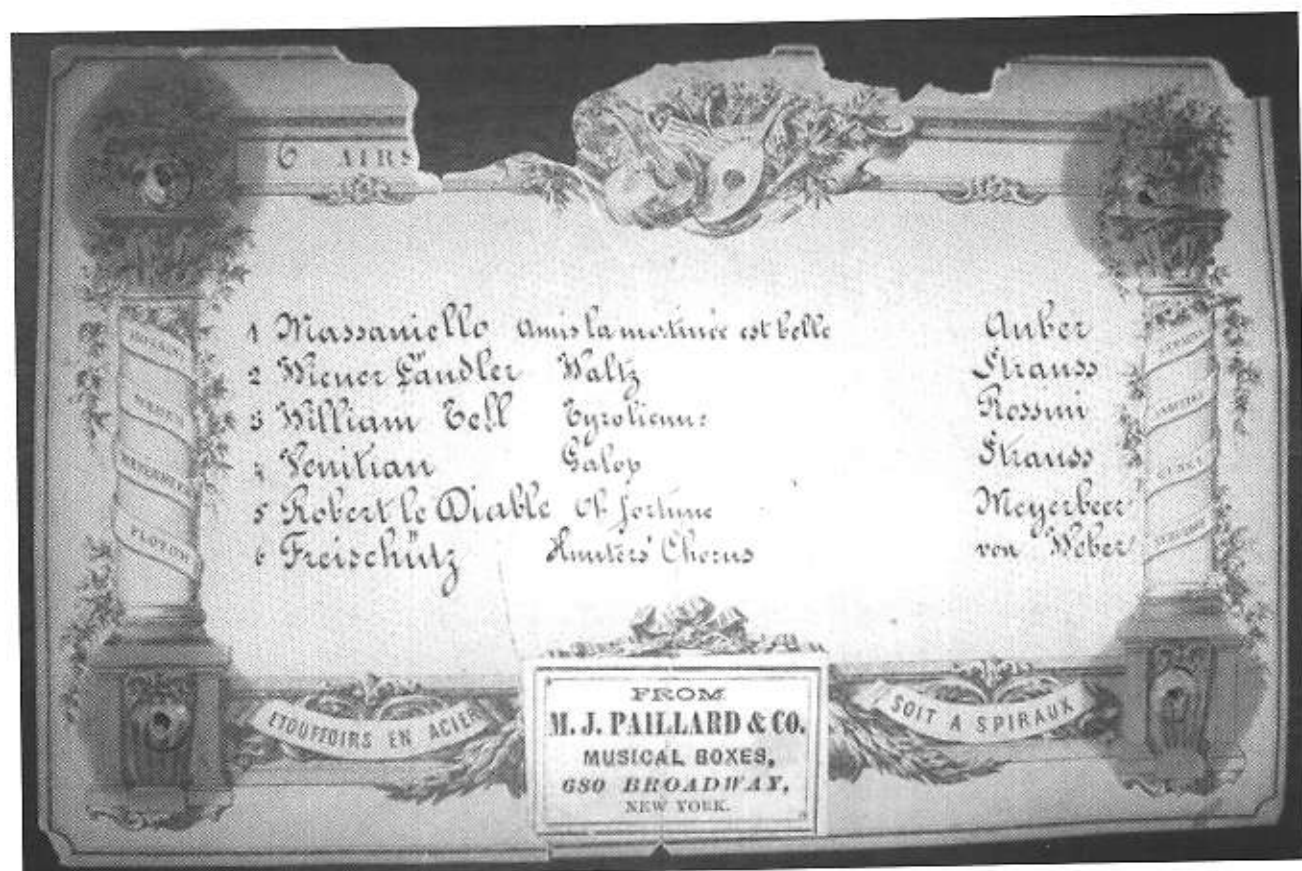 6 AIRS
1 Massaniello Amis la matinée est belle Auber
2 Wiener Ländler Waltz Strauss
3 William Tell Tyrolienne Rossini
4 Venitian Galop Strauss
5 Robert le Diable Oh fortune Meyerbeer
6 Freischütz Hunters' Chorus von Weber
ROSSINI
WEBER
MEYERBEER
FLOTOW
STRAUSS
LABITZKI
GUNGL
ETOUFFOIRS EN ACIER
SOIT A SPIRAUX
FROM
M. J. PAILLARD & CO.
MUSICAL BOXES,
680 BROADWAY,
NEW YORK.